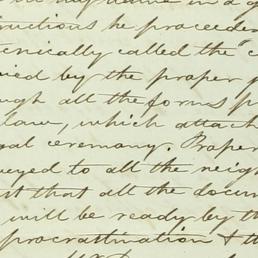 my name in a
ructions he proceeded
nically called the "c
ied by the proper
ugh all the forms p
law, which attach
al ceremony. Proper
veyed to all the neigh
st that all the docum
will be ready by th
procrastination & th